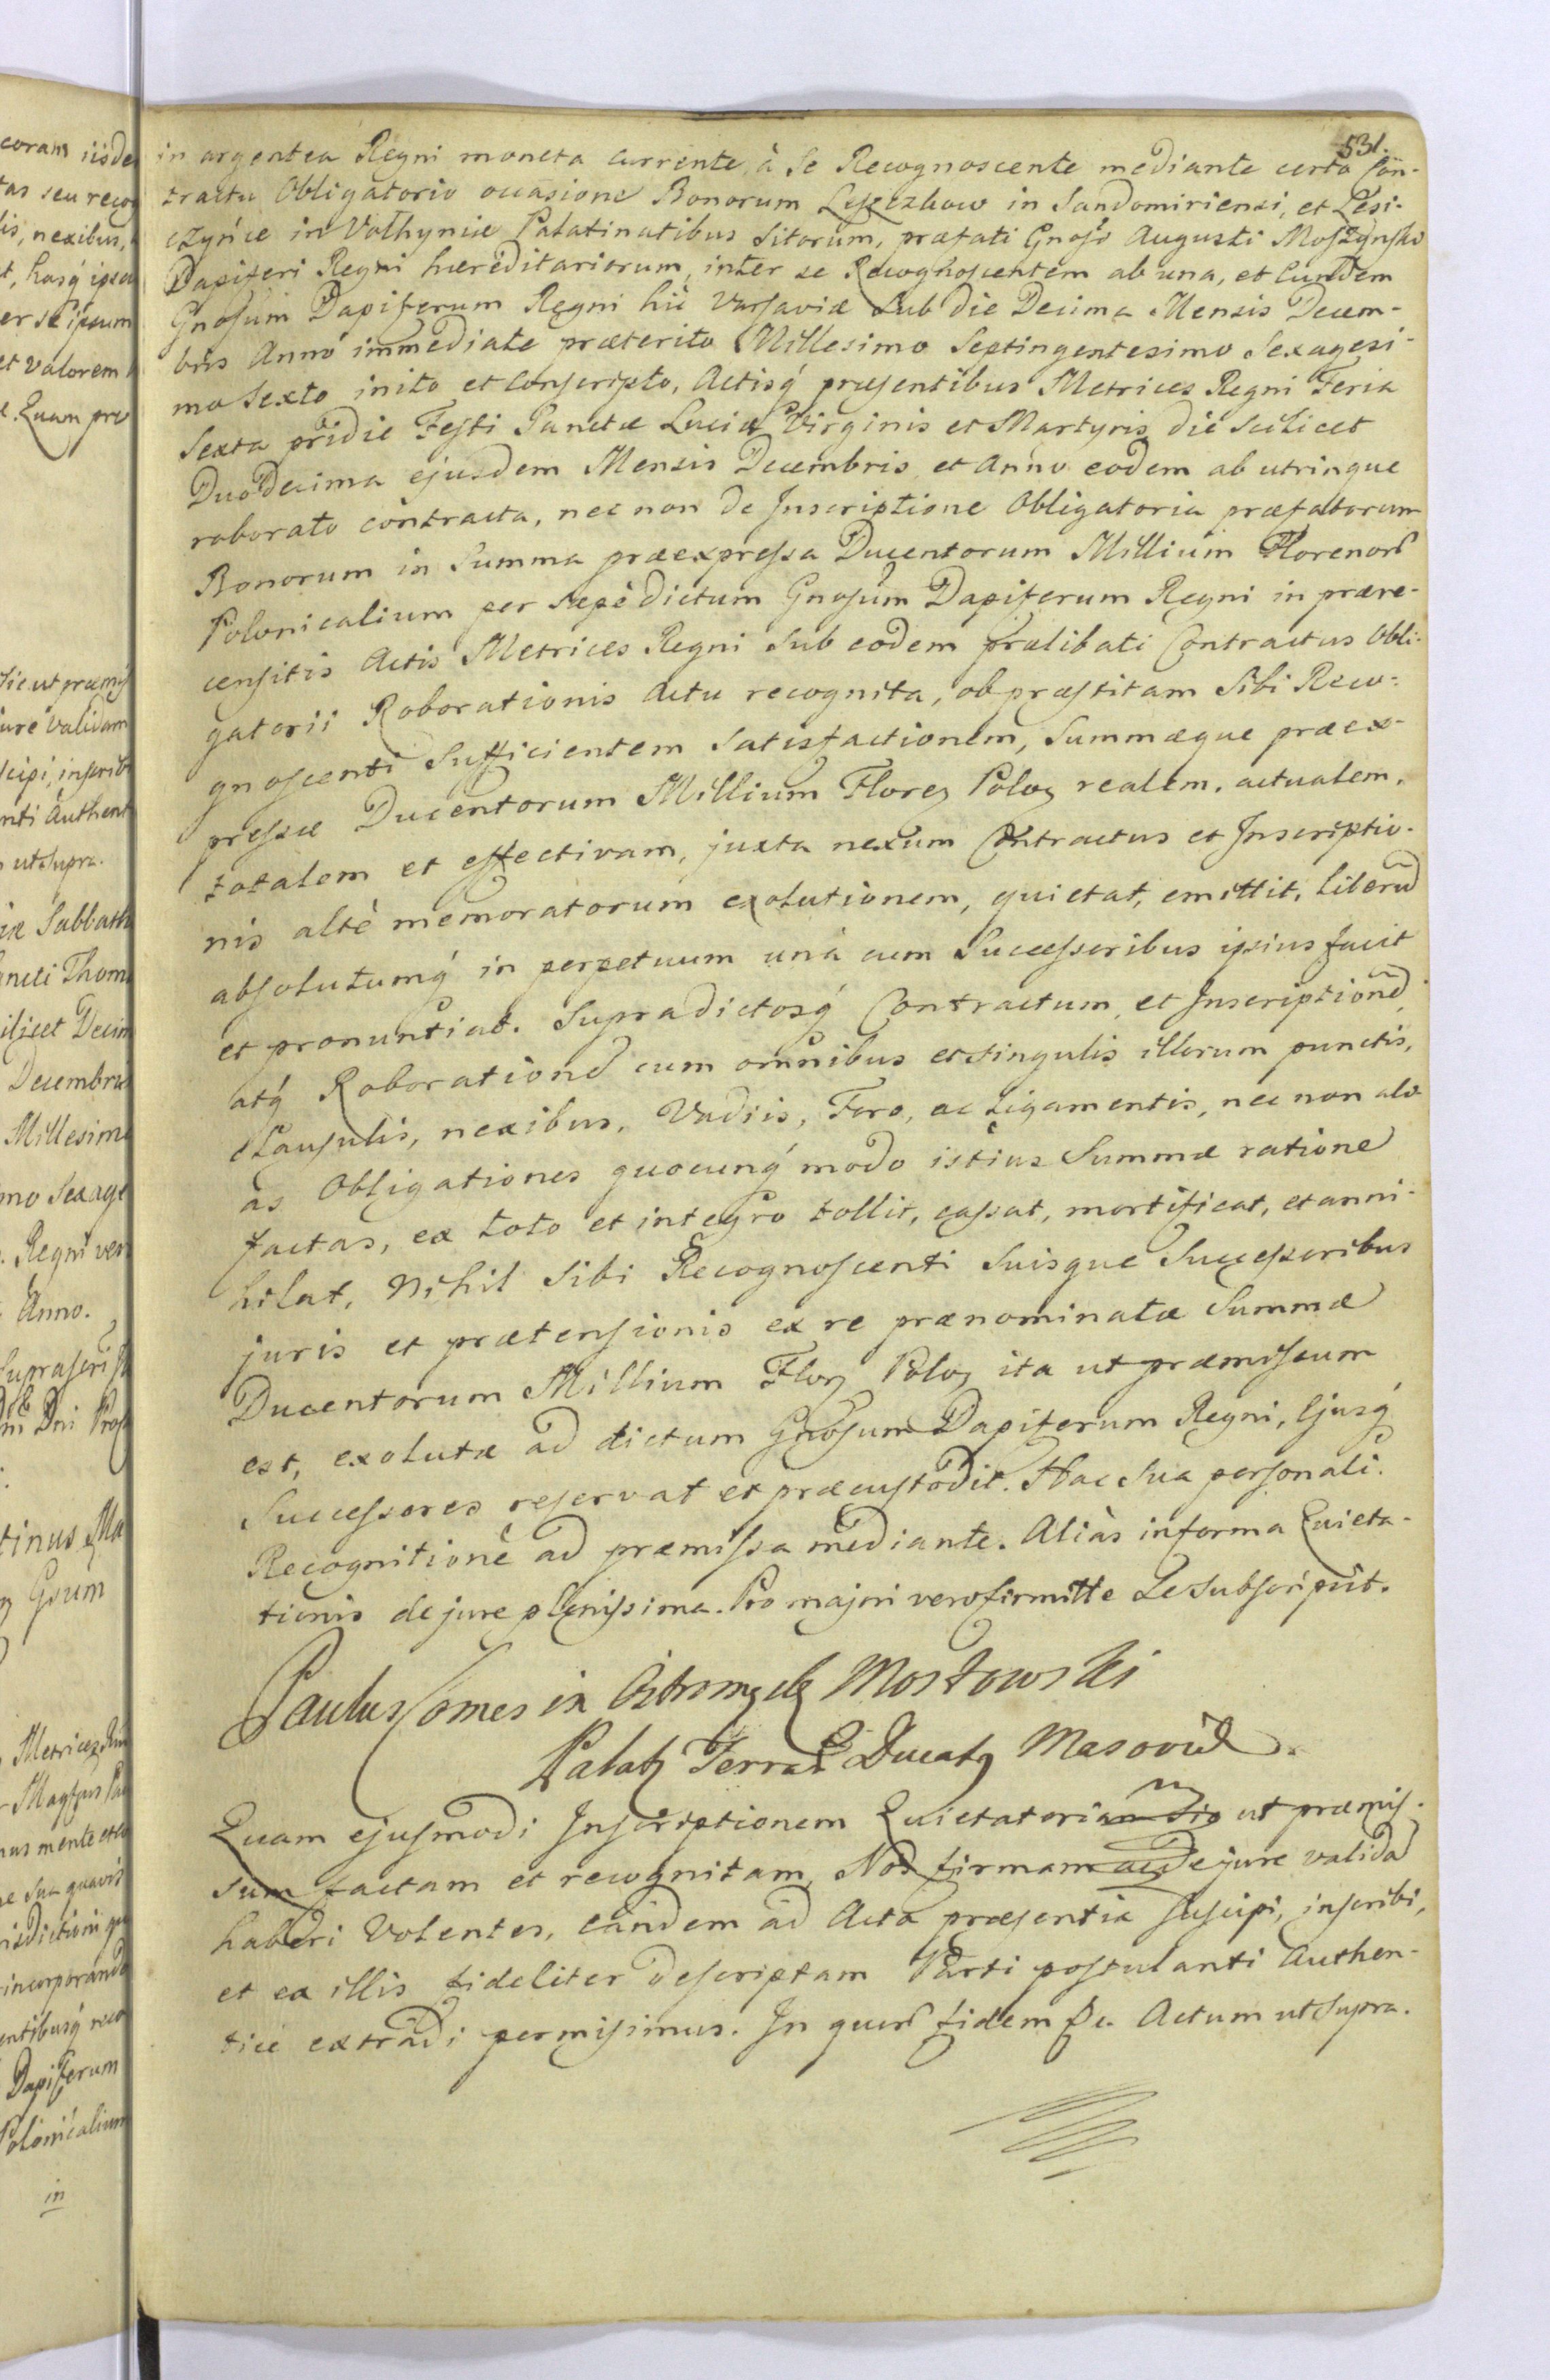 531.
in argentea Regni moneta currente, à Se Recognoscente mediante certo Con-
tractu Obligatorio occasione Bonorum in Sandomiriensi, et Lesi-
czyńce in Volhyniæ Palatinatibus Sitorum, præfati Gnosi Augusti Moszyński
Dapiferi Regni hæreditariorum, inter se Recognoscentem ab una, et Eundem
Gnosum Dapiferum Regni hic Varsaviæ Sub die Decima Mensis Decem-
bris Anno immediate præterito Millesimo Septingentesimo Sexagesi-
mo Sexto inito et Conscripto, Actisq́ præsentibus Metrices Regni Feria
Sexta pridie Festi Sanctæ Luciæ Virginis et Martyris die Scilicet
Duodecima ejusdem Mensis Decembris et Anno eodem ab utrinque
roborato contracta, nec non de Inscriptione Obligatoria præfatorum
Bonorum in Summa præexpressa Ducentorum Millium Florenor
Polonicalium per Sæpèdictum Gnosum Dapiferum Regni in prære-
censitis Actis Metrices Regni Sub eodem prælibati Contractus Obli-
gatorii Roborationis Actu recognita, ob præstitam Sibi Reco-
gnoscenti Sufficientem Satisfactionem, Summæque præex-
pressæ Ducentorum Millium Florez Poloz realem, actualem,
totalem et effectivam, juxta nexum Contractus et Inscriptio-
nis altè memoratorum exolutionem, quietat, emittit, liberũ
absolutumq́ in perpetuum unà cum Successoribus ipsius facit
et pronuntiat. Supradictosq́ Contractum, et Inscriptionẽ,
atq́ Roborationẽ cum omnibus et Singulis illorum punctis,
clausulis, nexibus, Vadiis, Foro, ac Ligamentis, nec non ali-
as Obligationes quocunq́ modo istius Summæ ratione
factas, ex toto et integro tollit, cassat, mortificat, et anni-
hilat, Nihil Sibi Recognoscenti Suisque Successoribus
juris et prætensionis ex re prænominatæ Summæ
Ducentorum Millium Floz Poloz ita ut præmissum
est, exolutæ ad dictum Gnosum Dapiferum Regni, Ejusq́
Successores reservat et præcustodit. Hac Sua personali
Recognitione ad præmissa mediante. Aliàs in forma Quieta-
tionis de jure plenissima. Pro majori vero firmitte Se Subscripsit.
Paulus Comes in Mostowski
Palatz Terrar Ducatq Masoviæ.
Quam ejusmodi Inscriptionem Quietatoriam Sic ut præmis-
sum factam et recognitam, Nos firmam ac de jure validã
haberi Volentes, Eandem ad Acta præsentia Suscipi, inscribi,
et ex illis fideliter descriptam Parti postulanti Authen-
ticè extradi permisimus. In quor fidem &c. Actum ut Supra.
coram iisde
tas seu recog
lis, nexibus,
t, hasq́ ipsu
er se ipsum
et valorem
Quam pro
Sic ut præmis
jure validam
scipi, inscrib
nti Authent
ut Supra.
iæ Sabbath
ncti Thom
ilicet Decim
Decembris
Millesimo
mo Sexage
Regni ver
Anno.
Suprascrip
tinus Ma
Gsum
Metricez
Magtus
nus mente et co
e Sua quavis
risdictioni
incorporando
entibusq́ reco
Dapiferum
Polonicalium
in